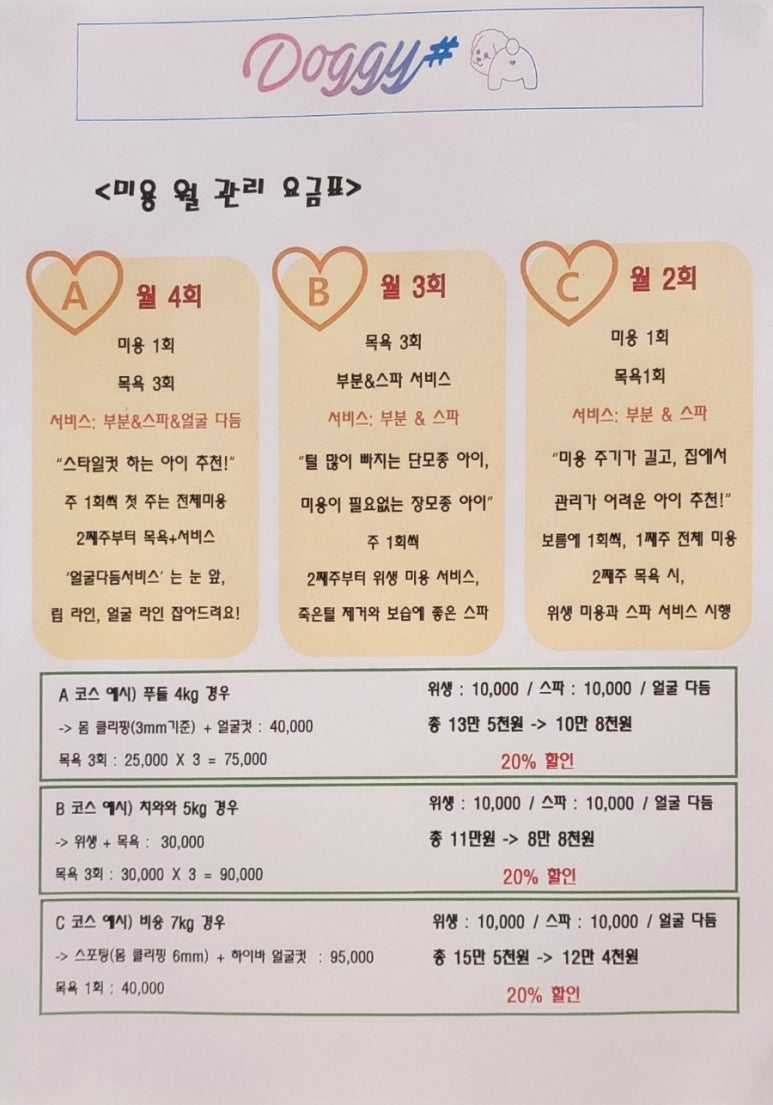 Doggy#
<미용 월 관리 요금표>
A
월 4회
미용 1회
목욕 3회
서비스: 부분&스파&얼굴 다듬
"스타일컷 하는 아이 추천!"
주 1회씩 첫 주는 전체미용
2째주부터 목욕+서비스
'얼굴다듬서비스' 는 눈 앞,
립 라인, 얼굴 라인 잡아드려요!
B
월 3회
목욕 3회
부분&스파 서비스
서비스: 부분 & 스파
"털 많이 빠지는 단모종 아이,
미용이 필요없는 장모종 아이"
주 1회씩
2째주부터 위생 미용 서비스,
죽은털 제거와 보습에 좋은 스파
C
월 2회
미용 1회
목욕1회
서비스: 부분 & 스파
"미용 주기가 길고, 집에서
관리가 어려운 아이 추천!"
보름에 1회씩, 1째주 전체 미용
2째주 목욕 시,
위생 미용과 스파 서비스 시행
A 코스 예시) 푸들 4kg 경우
-> 몸 클리핑(3mm기준) + 얼굴컷 : 40,000
목욕 3회 : 25,000 X 3 = 75,000
위생 : 10,000 / 스파 : 10,000 / 얼굴 다듬
총 13만 5천원 -> 10만 8천원
20% 할인
B 코스 예시) 치와와 5kg 경우
-> 위생 + 목욕 : 30,000
목욕 3회 : 30,000 X 3 = 90,000
위생 : 10,000 / 스파 : 10,000 / 얼굴 다듬
총 11만원 -> 8만 8천원
20% 할인
C 코스 예시) 비숑 7kg 경우
-> 스포팅(몸 클리핑 6mm) + 하이바 얼굴컷 : 95,000
목욕 1회 : 40,000
위생 : 10,000 / 스파 : 10,000 / 얼굴 다듬
총 15만 5천원 -> 12만 4천원
20% 할인